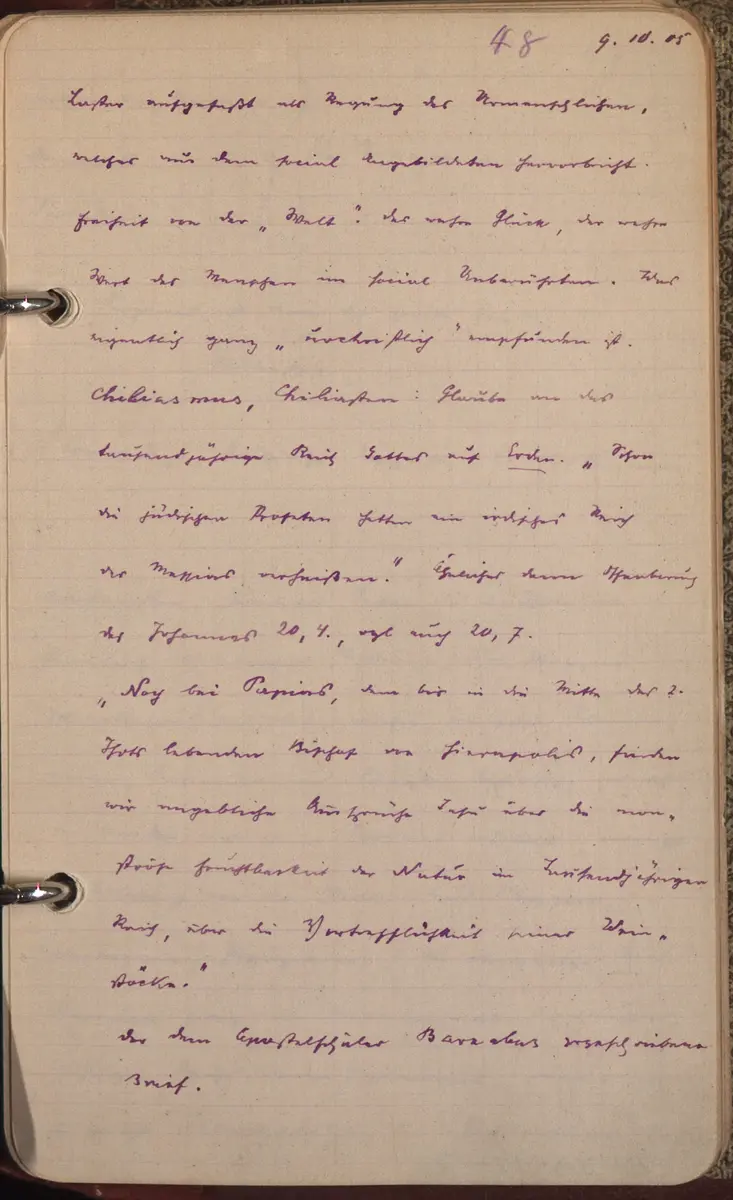 48 9.10.05
Laster aufgefaßt als Regung des Urmenschlichen,
welches aus dem social Angebildeten hervorbricht.
Freiheit von der „Welt“. Das wahre Glück, der wahre
Wert des Menschen im social Unberührten. Was
eigentlich ganz „urchristlich“ empfunden ist.
Chiliasmus, Chiliasten: Glaube an das
tausendjährige Reich Gottes auf Erden. „Schon
die jüdischen Profeten hatten ein irdisches Reich
des Messias verheißen.“ Ähnliches dann Offenbarung
des Johannes 20,4., vgl auch 20,7.
„Noch bei Papias, dem bis in die Mitte des 2.
Jhdts lebenden Bischof von Hierapolis, finden
wir angebliche Aussprüche Jesu über die mon-
ströse Fruchtbarkeit der Natur im Tausendjährigen
Reich, über die Vortrefflichkeit seiner Wein-
stöcke.“
Der dem Apostelschüler Barnabas zugeschriebene
Brief.